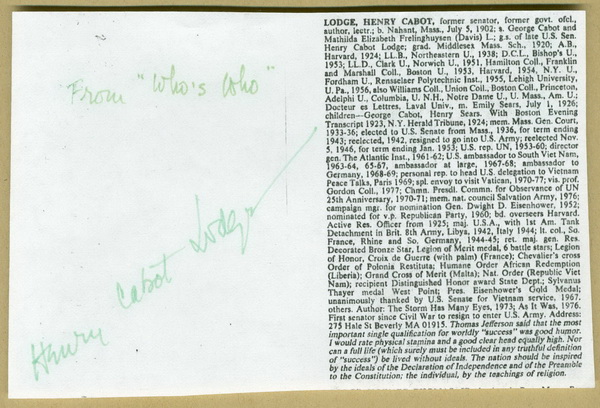 From "Who's Who"
Henry Cabot Lodge
LODGE, HENRY CABOT, former senator, former govt. ofcl.,
author, lectr.; b. Nahant, Mass., July 5, 1902; s. George Cabot and
Mathilda Elizabeth Frelinghuysen (Davis) L.; g.s. of late U.S. Sen.
Henry Cabot Lodge; grad. Middlesex Mass. Sch., 1920; A.B.,
Harvard, 1924; LL.B., Northeastern U., 1938; D.C.L., Bishop's U.,
1953; LL.D., Clark U., Norwich U., 1951, Hamilton Coll., Franklin
and Marshall Coll., Boston U., 1953, Harvard, 1954, N.Y. U.,
Fordham U., Rensselaer Polytechnic Inst., 1955, Lehigh University,
U. Pa., 1956, also Williams Coll., Union Coll., Boston Coll., Princeton,
Adelphi U., Columbia, U. N.H., Notre Dame U., U. Mass., Am. U.;
Docteur es Lettres, Laval Univ., m. Emily Sears, July 1, 1926;
children—George Cabot, Henry Sears. With Boston Evening
Transcript 1923, N.Y. Herald Tribune, 1924; mem. Mass. Gen. Court,
1933-36; elected to U.S. Senate from Mass., 1936, for term ending
1943; reelected, 1942, resigned to go into U.S. Army; reelected Nov.
5, 1946, for term ending Jan. 1953; U.S. rep. UN, 1953-60; director
gen. The Atlantic Inst., 1961-62; U.S. ambassador to South Viet Nam,
1963-64, 65-67, ambassador at large, 1967-68; ambassador to
Germany, 1968-69; personal rep. to head U.S. delegation to Vietnam
Peace Talks, Paris 1969; spl. envoy to visit Vatican, 1970-77; vis. prof.
Gordon Coll., 1977; Chmn. Presdl. Commn. for Observance of UN
25th Anniversary, 1970-71; mem. nat. council Salvation Army, 1976;
campaign mgr. for nomination Gen. Dwight D. Eisenhower, 1952;
nominated for v.p. Republican Party, 1960; bd. overseers Harvard.
Active Res. Officer from 1925; maj. U.S.A., with 1st Am. Tank
Detachment in Brit. 8th Army, Libya, 1942, Italy 1944; lt. col.; So.
France, Rhine and So. Germany, 1944-45; ret. maj. gen. Res.
Decorated Bronze Star, Legion of Merit medal, 6 battle stars; Legion
of Honor, Croix de Guerre (with palm) (France); Chevalier's cross
Order of Polonia Restituta; Humane Order African Redemption
(Liberia); Grand Cross of Merit (Malta); Nat. Order (Republic Viet
Nam); recipient Distinguished Honor award State Dept.; Sylvanus
Thayer medal West Point; Pres. Eisenhower's Gold Medal;
unanimously thanked by U.S. Senate for Vietnam service, 1967.
others. Author: The Storm Has Many Eyes, 1973; As It Was, 1976.
First senator since Civil War to resign to enter U.S. Army. Address:
275 Hale St Beverly MA 01915. Thomas Jefferson said that the most
important single qualification for worldly "success" was good humor.
I would rate physical stamina and a good clear head equally high. Nor
can a full life (which surely must be included in any truthful definition
of "success") be lived without ideals. The nation should be inspired
by the ideals of the Declaration of Independence and of the Preamble
to the Constitution; the individual, by the teachings of religion.